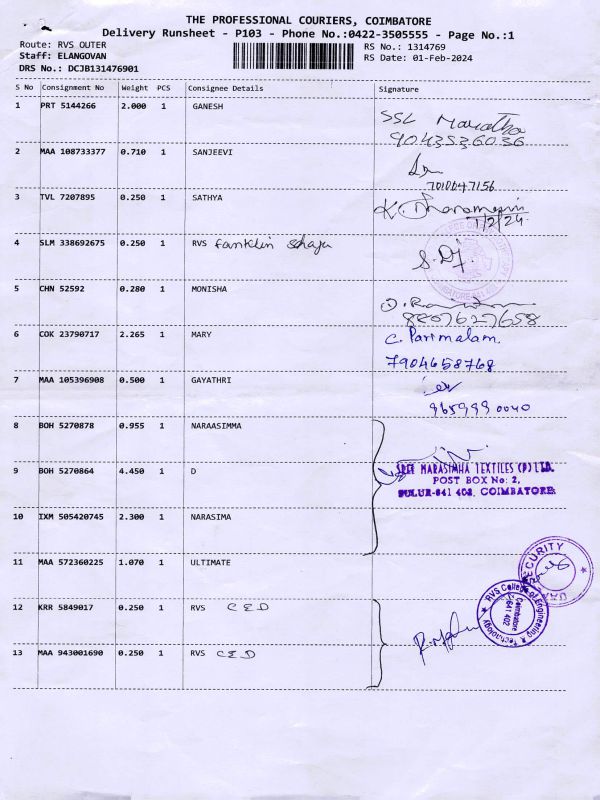 THE PROFESSIONAL COURIERS, COIMBATORE
Delivery Runsheet - P103 - Phone No.:0422-3505555 - Page No.:1
Route: RVS OUTER
RS No.: 1314769
Staff: ELANGOVAN
RS Date: 01-Feb-2024
DRS No.: DCJB131476901
S No Consignment No Weight PCS Consignee Details Signature
1 PRT 5144266 2.000 1 GANESH
SSL
9043536036
2 MAA 108733377 0.710 1 SANJEEVI
7010047156
3 TVL 7207895 0.250 1 SATHYA
1/2/24
4 SLM 338692675 0.250 1 RVS
5 CHN 52592 0.280 1 MONISHA
8807627658
6 COK 23790717 2.265 1 MARY
C. Parimalam.
7904658768
7 MAA 105396908 0.500 1 GAYATHRI
9659990040
8 BOH 5270878 0.955 1 NARAASIMMA
9 BOH 5270864 4.450 1 D
SREE NARASIMHA TEXTILES (P) LTD.
POST BOX No: 2,
SULUR-641 402, COIMBATORE.
10 IXM 505420745 2.300 1 NARASIMA
11 MAA 572360225 1.070 1 ULTIMATE
SECURITY
12 KRR 5849017 0.250 1 RVS CED
RVS College of Engineering & Technology
Coimbatore
641 402
13 MAA 943001690 0.250 1 RVS CED